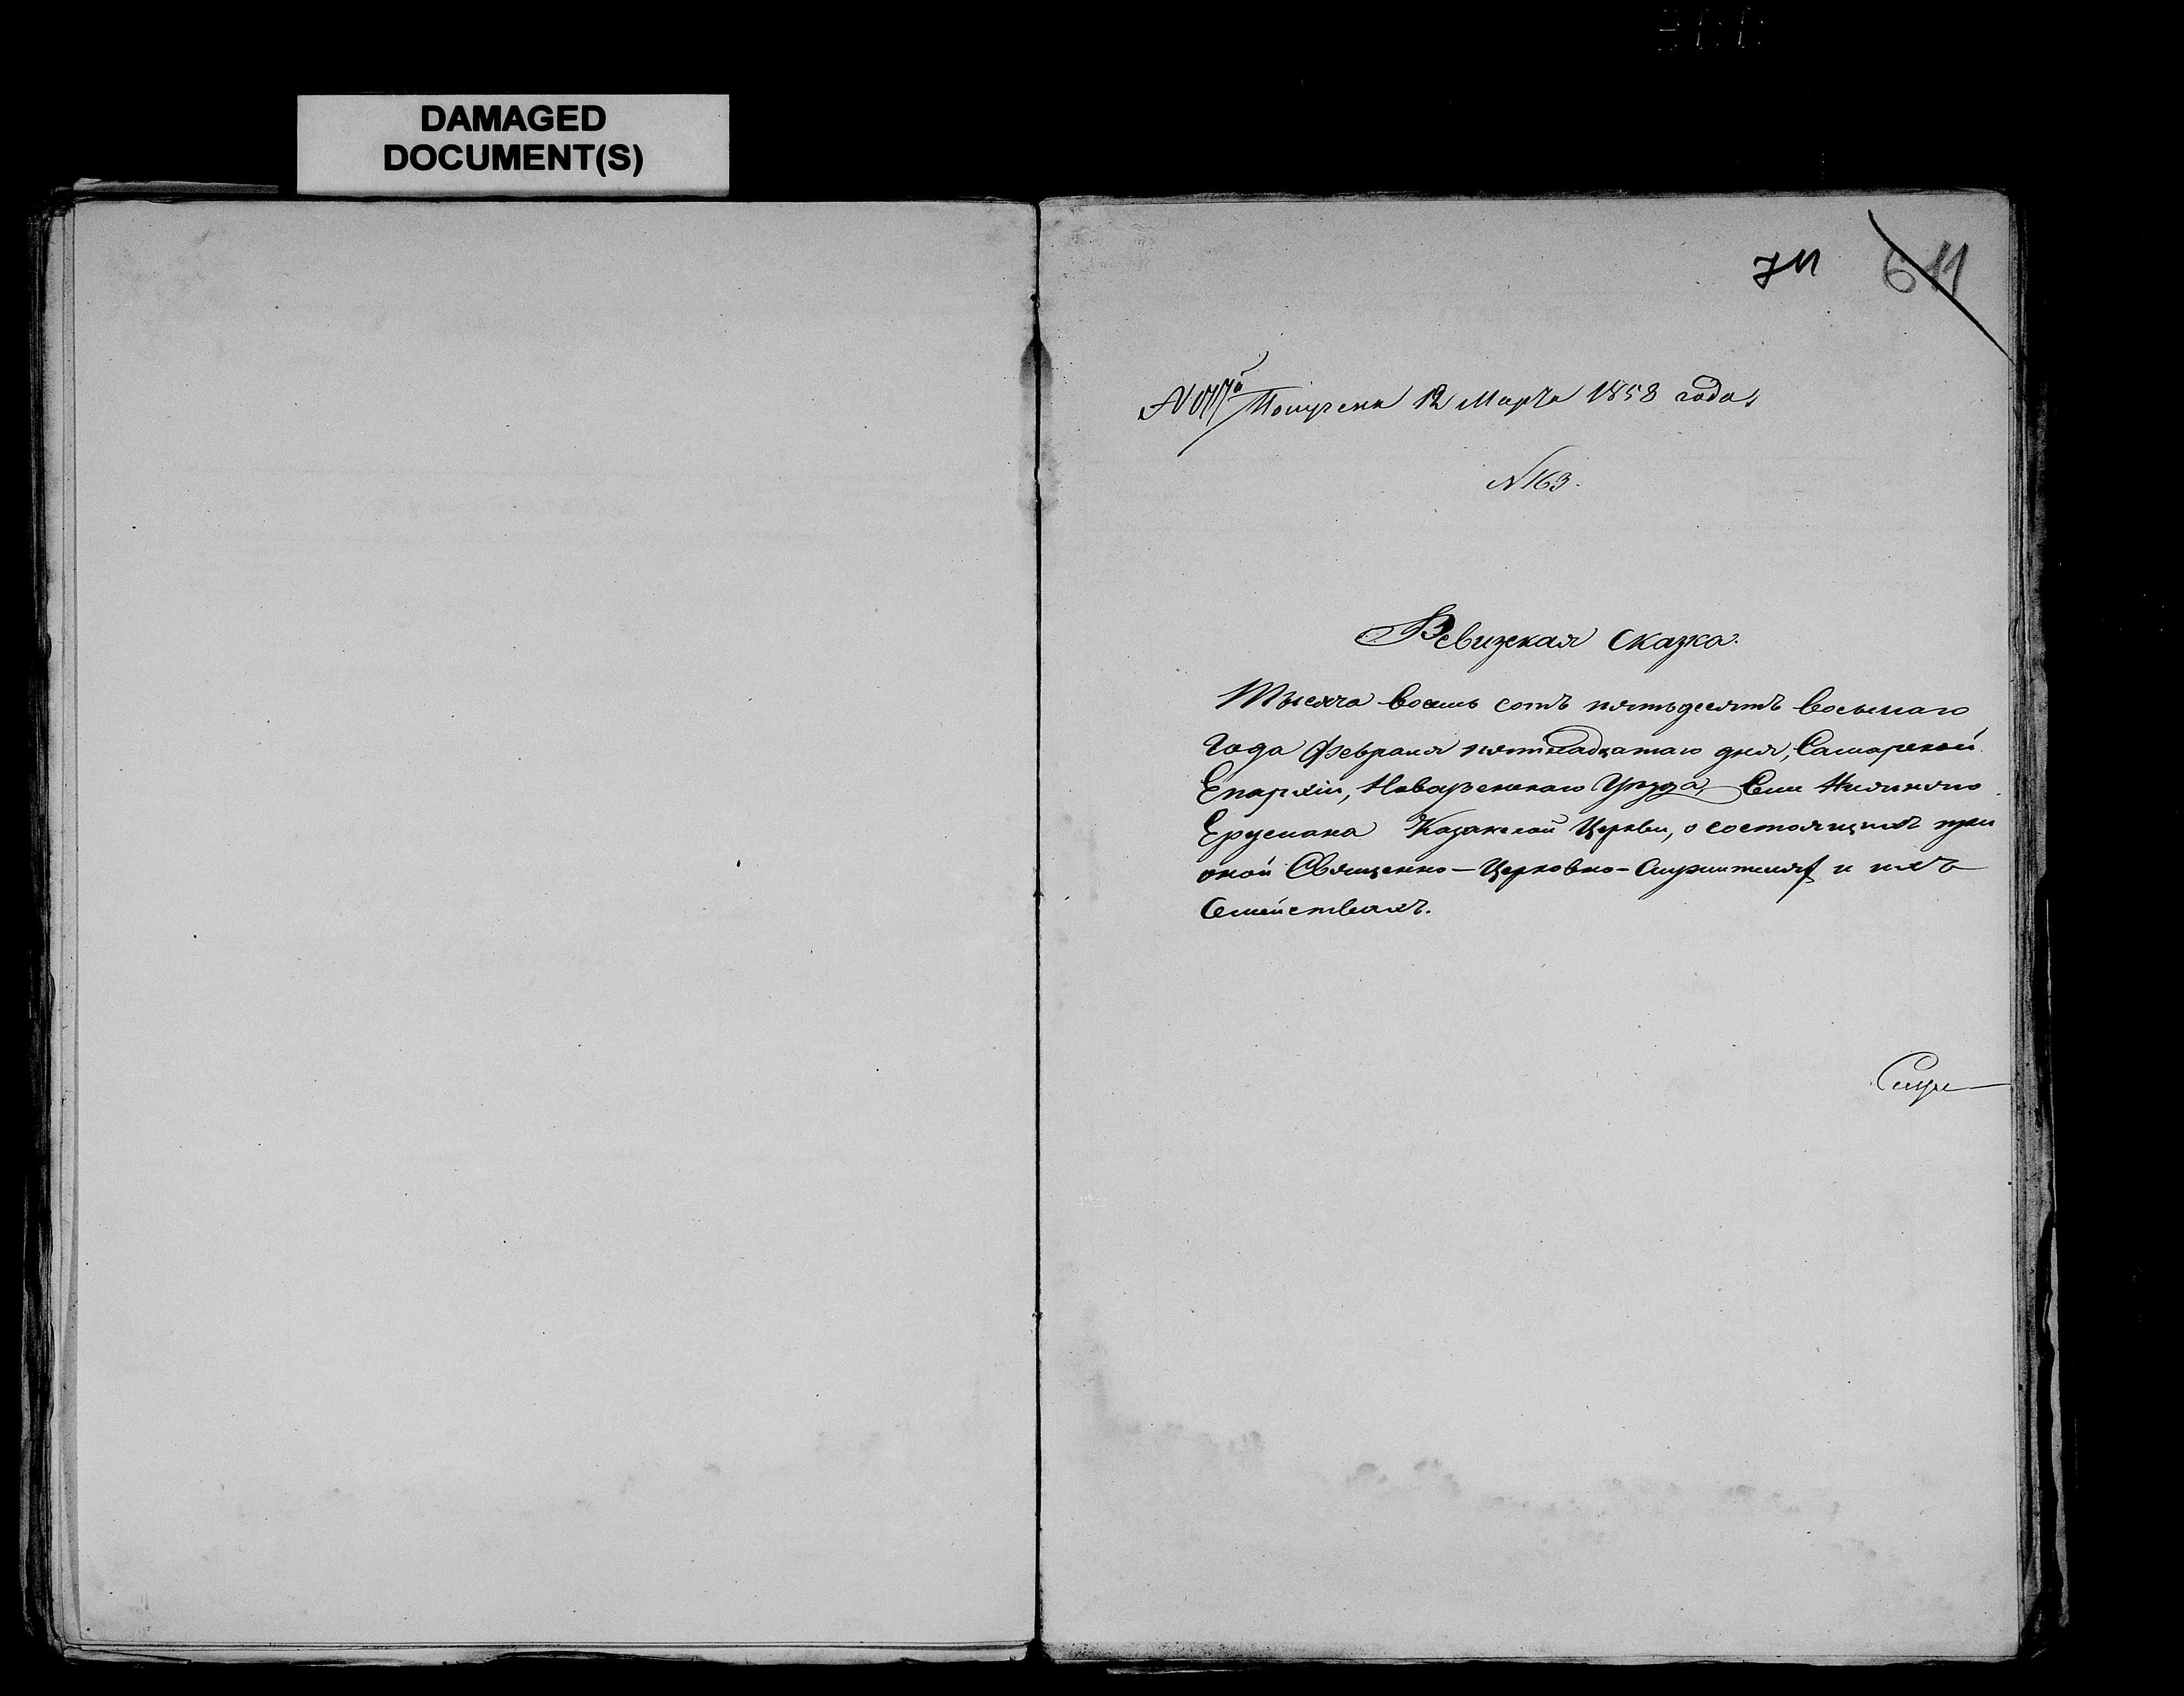 DAMAGED
DOCUMENT(S)
711 611
Получена 12 Марта 1858 года
№ 163.
Ревизская сказка.
Тысяча восемь сотъ пятьдесятъ восьмаго
Года Февраля пятнадцатаго дня, Самарской
Епархіи, Новоузенскаго Уѣзда, Села Нижняго
Еруслана Казанской Церкви, о состоящихъ при
оной Священно-Церковно-Служителяхъ и ихъ
Семействахъ.